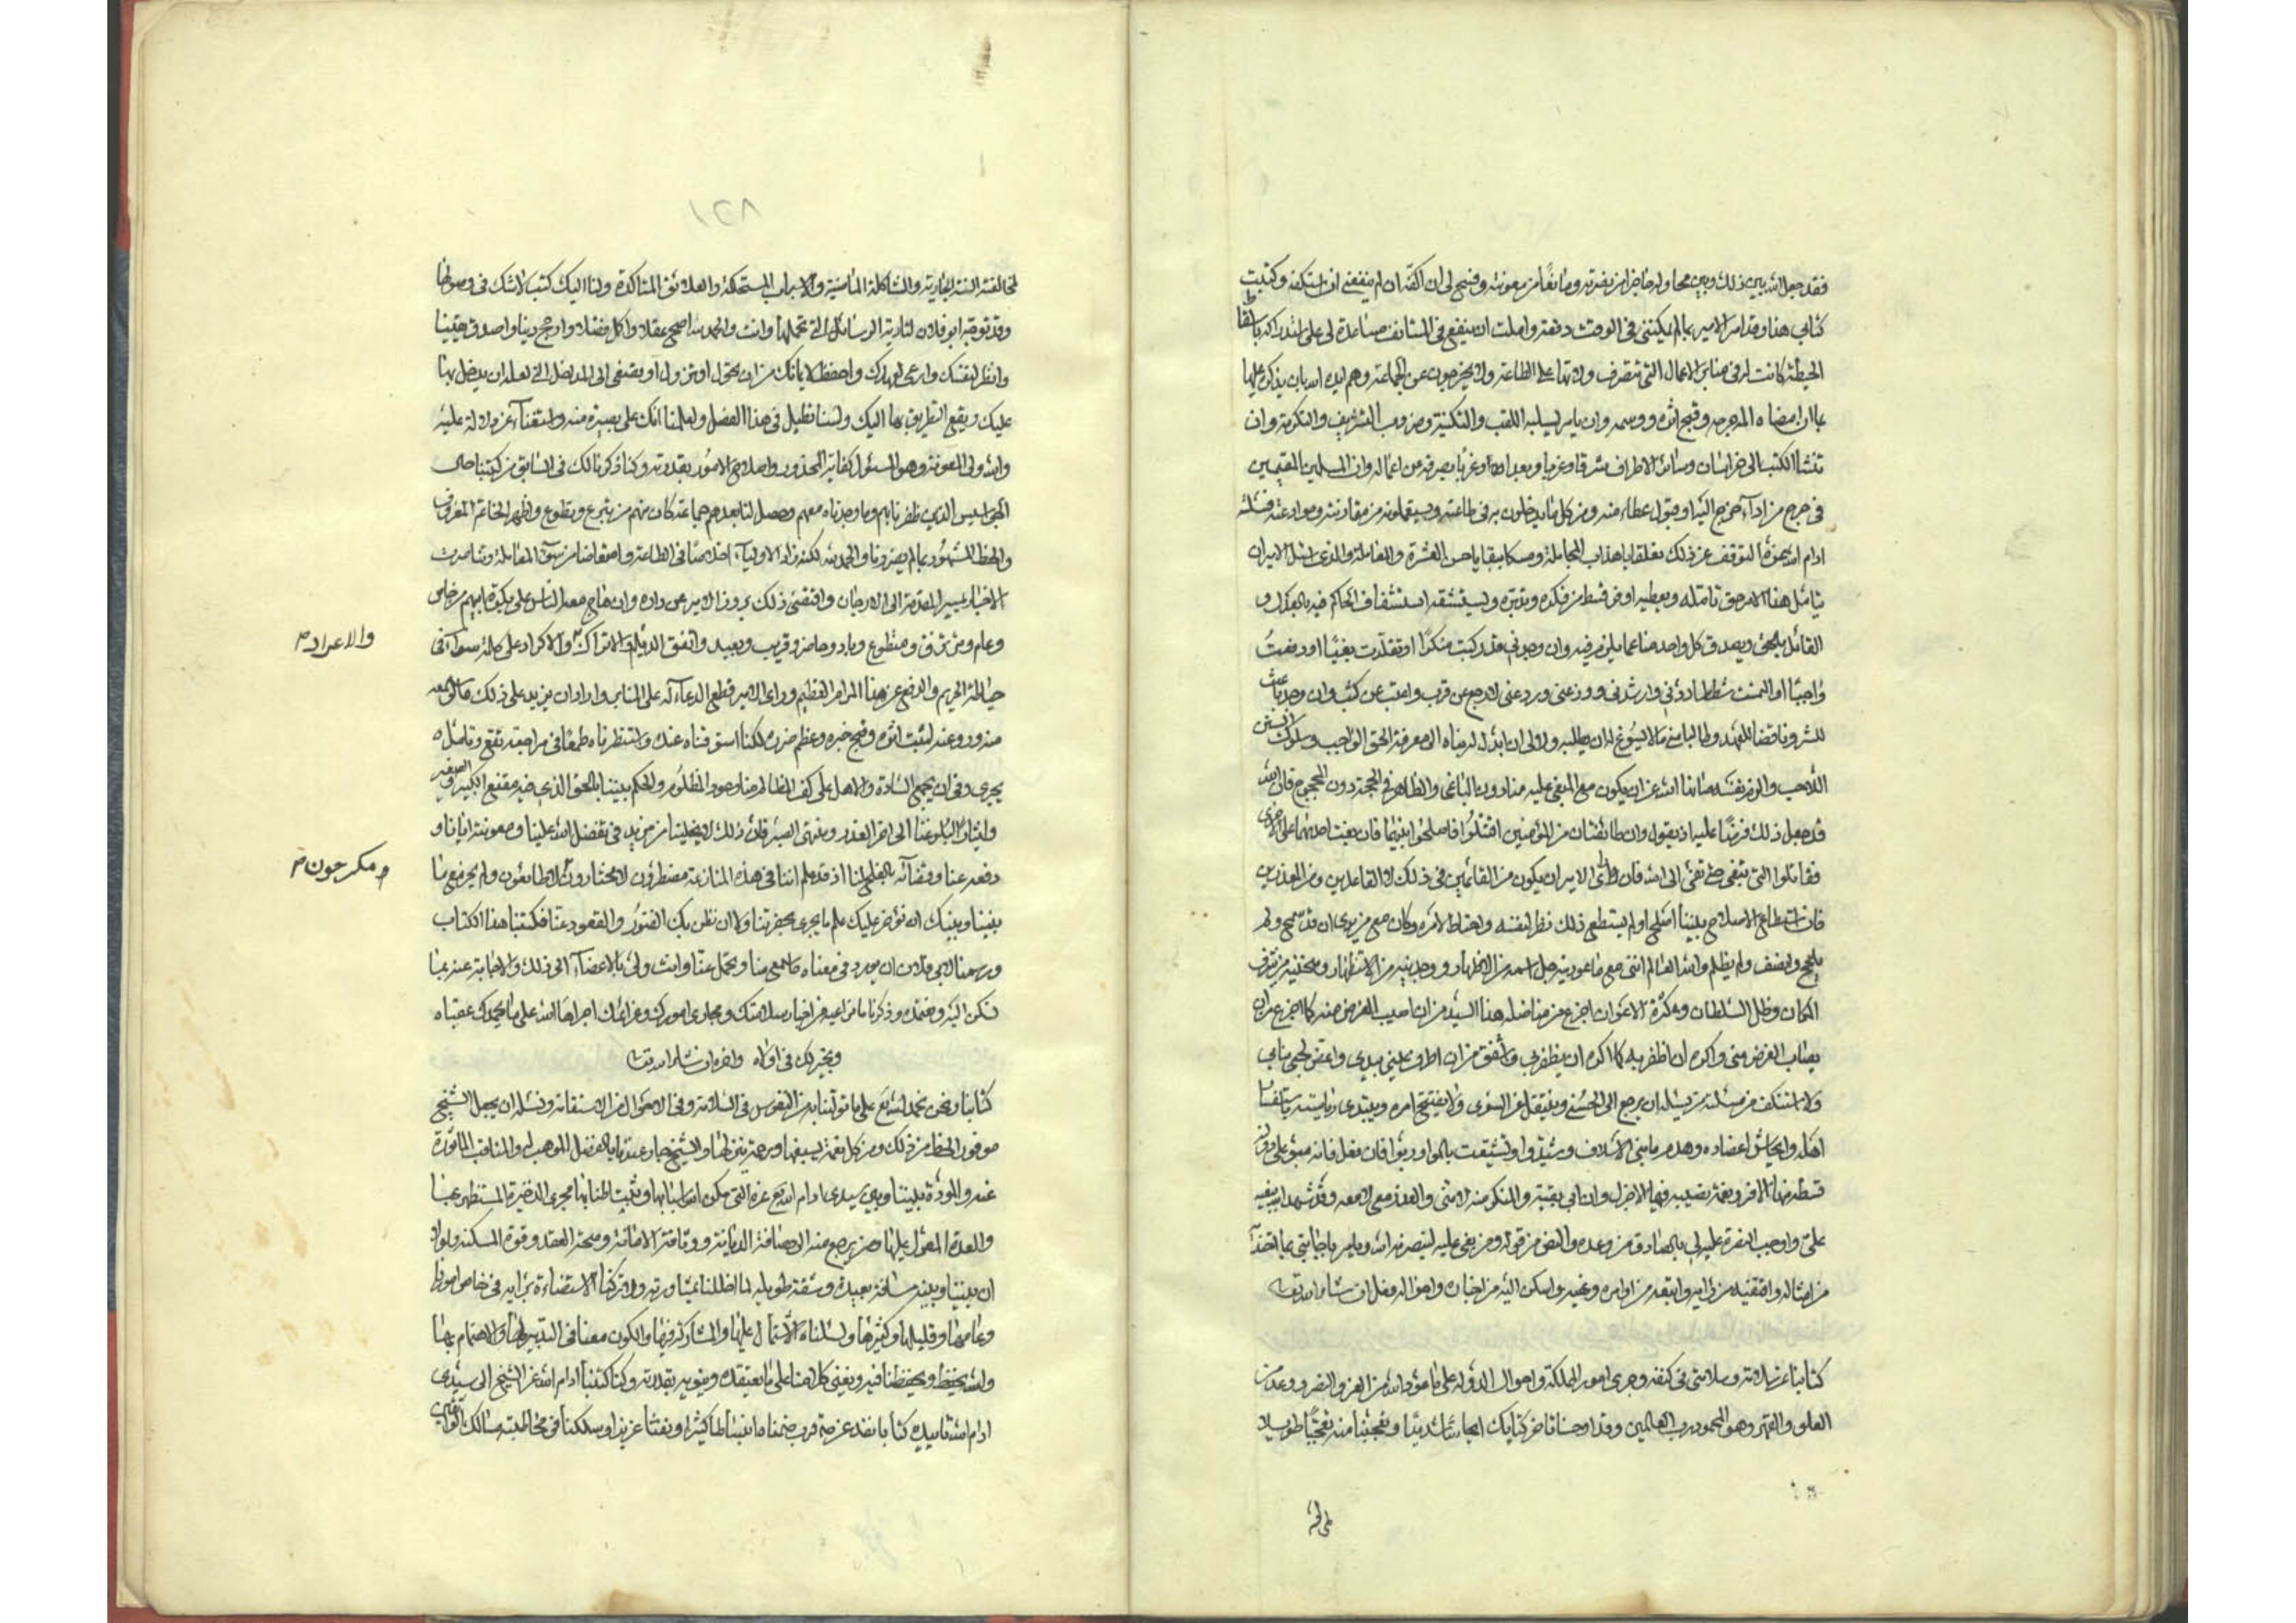 فقد جعل الله بين ذلك وبين محاوله حاجزا من نصرته ومانعا من معونته وفسح لي ان اكفه ان لم ينفعني ان استكفه وكتبت
كتابي هذا وقد امر الامير بما لم يمكنني في الوقت دفعه واملت ان ينفع في المستانف مساعدة لي على استدراكه باسقاط
الخطبة كانت له في منابر الاعمال التي تتصرف ولاتها على الطاعة ولا يخرجون عن الجماعة وهم لديه اسباب يذكره عليها
امضاه المه جرحه وقبح اثره ووسمه وان يامر بسلبه اللقب والتكنية وضروب التشريف والتكرمة وان
تنشا الكتب الى خراسان وسائر الاطراف شرقا وغربا وبعدا وغربا بصرفه عن اعماله وان المسلمين المقيمين
في حرج من اداء خراج اليه او قبول عطاء منه ومن كل ما يدخلون به في طاعته ويستعملونه من مقارنته وموادعته فسئلته
ادام الله عزه التوقف عن ذلك تعلقا باهداب المجاملة ومسكا ببقايا حسن العشرة والمعاملة والذي اسئل الامير ان
يتامل هذا الامر حق تامله ويعطيه اوفر قسط من فكره وتدبره ويستشفه استشفاف الحاكم فيه بالعدل و
القائل بالحق ويصدق كل واحد منا عما يلزم فيه وان وجدني قد ركبت منكرا او تقلدت بغيا او دفعت
واجبا او التمست شططا دلني وارشدني ووزعني وردعني لارجع عن قرب واعتب عن كثب وان وجد باعث
للشر وناقضا للعهد وطالبا مني ما لا يسوغ له ان يطلبه ولا لي ان ابذله له هداه الى معرفة الحق الواجب وسلوك السنن
اللاحب والزم نفسه صانها الله عز ان يكون مع المبغي عليه منا دون الباغي والظاهر في الحجة دون المحجوج فان الله
قد جعل ذلك فرضا عليه اذ يقول وان طائفتان من المؤمنين اقتتلوا فاصلحوا بينهما فان بغت احديهما على الاخرى
فقاتلوا التي تبغي حتى تفئ الى الله فان راى الامير ان يكون من القائمين في ذلك لا القاعدين ومن المعذرين
فان استطاع الاصلاح بيننا اصلح او لم يستطع ذلك نظر لنفسه واحتاط لامره وكان مع من يرى ان قد سمح ولم
يلجج وانصف ولم يظلم والله العالم انني مع ما عودنيه جل اسمه من الاظهار ووجدنيه من الاستظهار ومنحنيه من شرف
المكان وظل السلطان وكثرة الاعوان اجزع من مناضلة هذا السيد من ان اصيب الغرض منه كما اجزع من ان
يصاب الغرض مني واكره ان اظفر به كما اكره ان يظفر بي واشفق من ان اطرف عيني بيدي واعض لحمي بنابي
ولا استنكف من مسئلته من يسئله ان يرجع الى الحسنى وينتقل عن السوءى ولا يفتتح امره ويبتدي رياسته باستفساد
اهله وايحاش اعضاده وهدم ما بنى الاسلاف وشيدوا وتشتيت ما الفوا وربوا فان فعل فانه مبقى على موفور
قسطه من هذا الامر ونعمة نصيبه فيها الاجزل وان ابى بقيته والمنكر منه لا مني والعذر معي لا معه وقد شهد الله ببغيه
علي واوجب النصرة عليه لي بالصادق من وعده والنص من قوله ومن بغي عليه لينصرنه الله ويامر باجابتي عما اتخذه
من امثاله واقتفيه من رايه واتبعه من اوامره ونهيه واسكن اليه من اخباره واحواله فعل ان شاء الله تعالى
كتابنا عن سلامة وسلامتي في كنفه وجرى امور المملكة واحوال الدولة على ما عود الله من العز والنصر ووعد من
العلو والقهر وهو المحمود رب العالمين وقد اوحشنا تاخر كتابك ايحاشا شديدا وتعجبنا منه تعجبا طويلا
٨٢١
لمخالفته السنة الجارية والشاكلة الماضية والاسباب المستحكمة والعلائق المتاكدة ولنا اليك كتب لا شك في وصولها
وقد توجه ابو فلان لتادية الرسائل التي تحملها وانت والحمد لله اصح عقلا واكمل فضلا وارجح دينا واصدق يقينا
وانظر لنفسك وارعى لعهدك واحفظ لايمانك من ان تحول او تزول او تصغي الى المداخل التي لعله ان يدخل بها
عليك ويقع التطريق بها اليك ولسنا نطيل في هذا الفصل ولعلمنا انك على بصيرة منه واستغناء عن دلالة عليه
والله ولي المعونة وهو المسئول كفاية المحذور واصلاح الامور بقدرته وكنا ذكرنا لك في السابق من كتبنا حال
الجواسيس الذين ظفرنا بهم وما وجدناه معهم وحصل لنا بعدهم جماعة كان منهم من تبرع وتطوع واظهر الخاتم المعروف
والخط المشهور بما لم يضرونا والحمد لله لكنه زاد الاولياء اخلاصا في الطاعة وامتعاضا من سوء المعاملة وتناصرت
الاخبار بمسير المقدمة الى الارجان واقتضى ذلك بروز الامير عن داره وان هاج معه الناس على بكرة ابيهم من خاص
وعام ومرتزق ومتطوع وباد وحاضر وقريب وبعيد واتفق الديلم والاتراك والاكراد على كلمة سواء في
والاعراد م
حياطة الحريم والدفع عن هذا المرام العظيم وراى الامير قطع الدعاء له على المنابر واراد ان يزيد على ذلك ما لو سمعه
منه ورو عنه لبقيت اثره وقبح خبره وعظم ضرره لكنا استوقفناه عنه واستنظرناه طمعا في مراجعة تقع وتامل ه
يجري وفي ان يجمع السادة والاهل على كف الظالم منا وعود المظلوم والحكم بيننا بالحق الذي فيه مقنع الكبير والصغير
وايثارا لبلوغنا الى اخر العذر ومنتهى الصبر فان ذلك لا يخلينا من مزيد في تفضل الله علينا ومعونته ايانا و
دفعه عنا وقضائه بالفلج لنا اذ قد علم اننا في هذه المنازعة مضطرون لا مختارون لا طائعون ولم يجز مع ما
و مكرهون م
بيننا وبينك ان نؤخر عليك علم ما يجري بحضرتنا ولا ان نظن بك الفتور والقعود عنا فكتبنا هذا الكتاب
ورسمنا لابي فلان ان يورد في معناه ما سمع منا وتحمل عنا وانت ولي بالاصغاء الى ذلك والاجابة عنه بما
نسكن اليه ونعتمده وذكرنا ما نراعيه من اخبار سلامتك ومجاري امورك وعزائمك اجراها الله على ما يحمدك عقباه
ويخير لك في اولاه واخره ان شاء الله تعالى
كتابنا ونحن نحمد الله تع على ما تولينا به من النفوس في السلامة وفي الاحوال من الاستقامة ونسئله ان يجعل الشيخ
موفور الحظ من ذلك ومن كل نعمة يسبغها ومرحمة ينزلها والشيخ جار عندنا بالفضل الموهوب له والمناقب الماثورة
عنه والمودة بيننا وبين سيدي ادام الله تع عزه التي تمكن اسبابها وتثبت اطنابها مجرى الذخيرة المستظهر بها
والعدة المعول عليها ومن يرجع منه الى حصافة الديانة ووثاقة الامانة وصحة العقد وقوة المسكة ولولا
ان بيننا وبينه مسافة بعيدة وشقة طويلة لما اخللنا بمشاورته ولا تركنا الاستضاءة برايه في خاص امورنا
وعامها وقليلها وكثيرها ولسئلناه الاشتمال عليها والمشاركة فيها والكون معنا في التدبير لها والاهتمام بها
والله يحفظه ويحفظنا فيه ويعين كلا منا على ما يعتقده وينويه بقدرته وكنا كتبنا ادام الله عز الشيخ الى سيدي
ادام الله تاييده كتابا نفذ عن مدة قرب ضمناه انبساطا كثيرا ونفثا عزيزا وسلكنا في مخاطبته مسالك